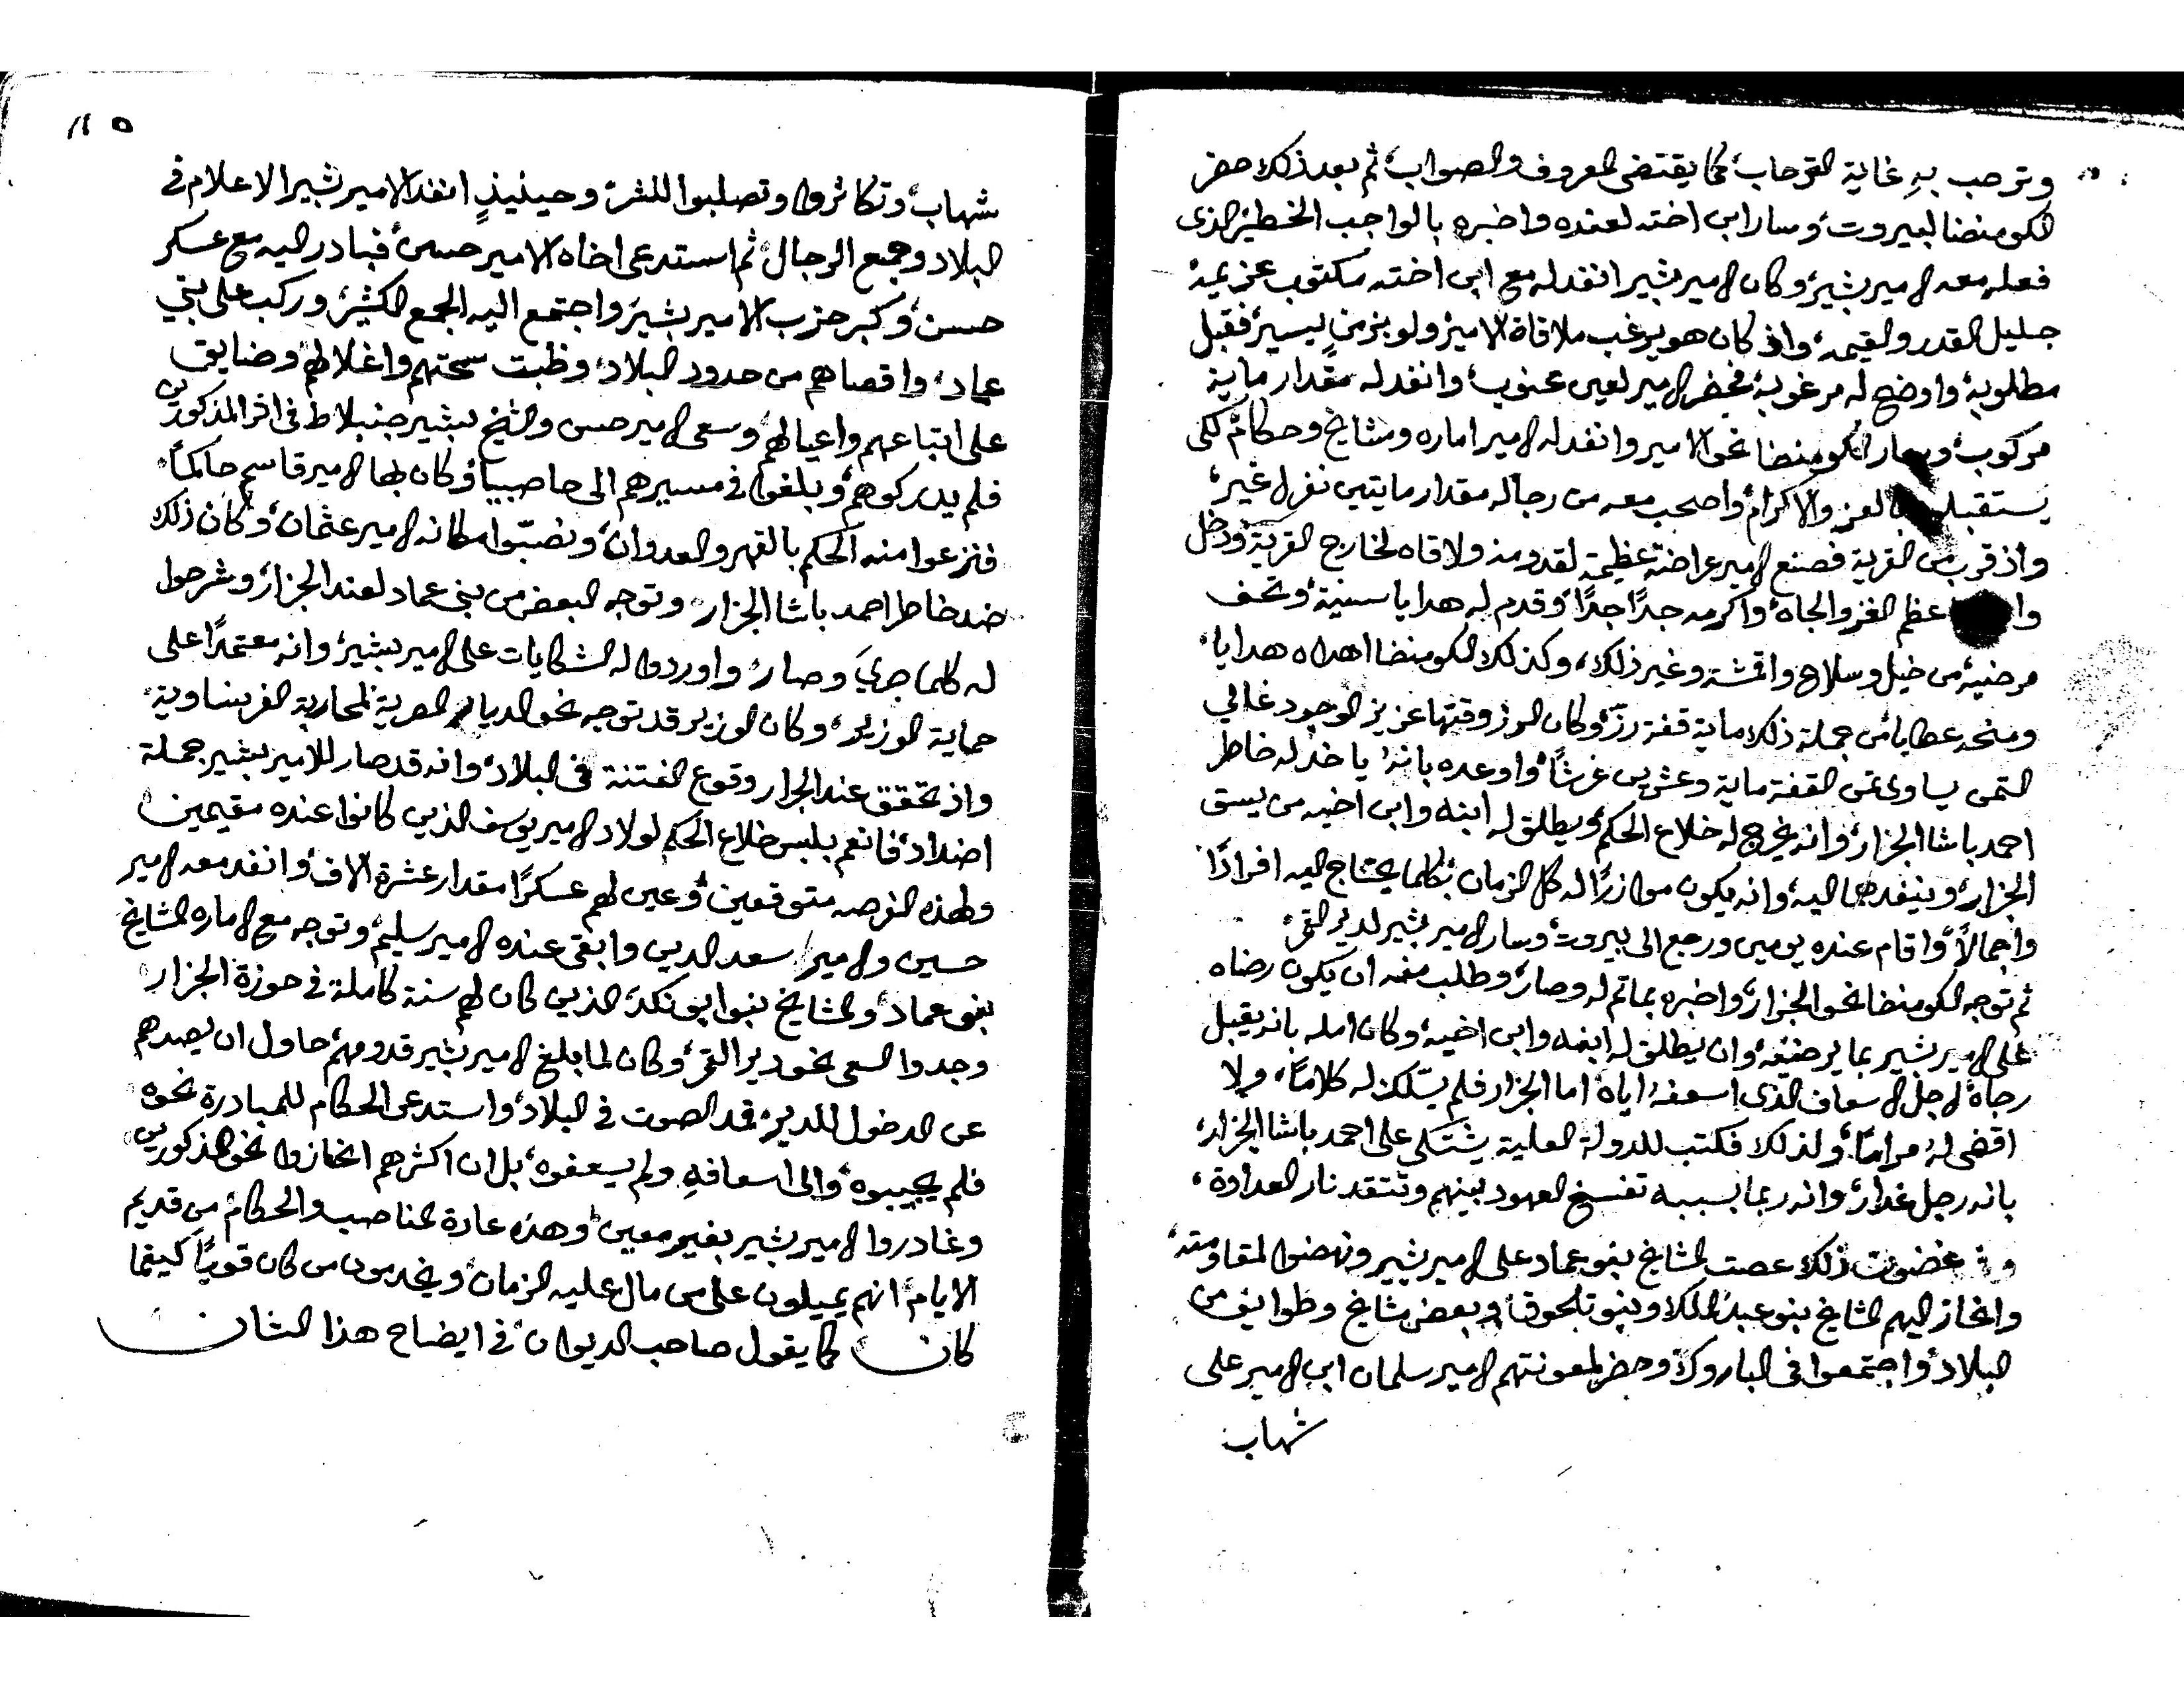 وترحب به غاية الترحاب، كما يقتضى المعروف والصواب، ثم بعد ذلك حضر
الكومنضا لبيروت، وسار ابن اخته لعنده واخبره بالواجب الخطير الذى
فعله معه الامير بشير، وكان الامير بشير انفد له مع ابن اخته مكتوب عزيمة
جليل القدر والقيمه، واذ كان هو يرغب ملاقاة الامير ولو بزمنٍ يسير، فقبل
مطلوبه، واوضح له مرغوبه، فحضر الامير لعين عنوب، وانفد له مقدار ماية
مركوب، وسار الكومنضا نحو الامير وانفد له الامير اماره ومشايخ وحكام لكى
يستقبلوه بالعز والاكرام، واصحب معه من رجاله مقدار مايتين نفر لا غير،
واذ قرب من القرية فصنع الامير عراضة عظيمة لقدومه ولاقاه لخارج القرية، ودخل
وا اعظم العز والجاه، واكرمه جدًا جدًا، وقدم له هدايا سنية، وتحف
مرضيه، من خيل وسلاح واقمشة وغير ذلك، وكذلك الكومنضا اهداه هدايا،
ومنحه عطايا، من جملة ذلك ماية قفة رز، وكان الرز وقتها عزيز الوجود غالي
التمن يساوى تمن القفة ماية وعشرين غرشًا، واوعده بانه ياخد له خاطر
احمد باشا الجزار، وانه يخرج له خلاع الحكم، ويطلق له ابنه وابن اخيه من يسق
الجزار، وينفدهما اليه، وانه يكون موازرًا له كل الزمان، بكلما يحتاج اليه افرادًا
واجمالًا، واقام عنده يومين ورجع الى بيروت، وسار الامير بشير لدير القمر
ثم توجه الكومنضا نحو الجزار، واخبره بما تم له وصار، وطلب منه ان يكون رضاه
على الامير بشير بما يرضيه، وان يطلق له ابنه وابن اخيه، وكان امله بانه يقبل
رجاه، لاجل الاسعاف الذى اسعفه اياه، اما الجزار فلم يستلكز له كلامًا، ولا
اقضى له مرامًا، ولذلك فكتب للدولة العلية يشتكى على احمد باشا الجزار،
بانه رجل غدار، وانه ربما بسببه تفسخ العهود بينهم وتتقد نار العداوة،
وفى غضون ذلك عصت المشايخ بنو عماد على الامير بشير ونهضوا لمقاومته،
وانحاز اليهم المشايخ بنو عبد الملك وبنو تلحوق، وبعض مشايخ وطوايف من
البلاد، واجتمعوا فى الباروك، وحضر لمعونتهم الامير سلمان ابن الامير على
شهاب
١١٥
شهاب، وتكاثروا وتصلبوا للشر، وحينيذٍ انفد الامير بشير الاعلام فى
البلاد وجمع الرجال، ثم استدعى اخاه الامير حسن، فبادر اليه مع عسكر
حسن، وكبر حزب الامير بشير، واجتمع اليه الجمع الكثير، وركب على بني
عماد، واقصاهم من حدود البلاد، وظبت سحتهم واغلالهم، وضايق
على اتباعهم واعيالهم، وسعى الامير حسن والشيخ بشير جنبلاط فى اثر المذكورين
فلم يدركوهم، وبلغوا فى مسيرهم الى حاصبيا، وكان بها الامير قاسم حاكمًا،
فنزعوا منه الحكم بالقهر والعدوان، ونصبوا مكانه الامير عثمان، وكان ذلك
ضد خاطر احمد باشا الجزار، وتوجه البعض من بنى عماد لعند الجزار، وشرحوا
له كلما جرى وصار، واوردوا له الشكايات على الامير بشير، وانه معتمدًا على
حماية الوزير، وكان الوزير قد توجه نحو الديار المصرية لمحاربة الفرنساوية،
واذ تحقق عند الجزار وقوع الفتنة فى البلاد، وانه قد صار للامير بشير جملة
اضداد، فانعم بلبس خلاع الحكم لولاد الامير يوسف الذين كانوا عنده مقيمين،
ولهذه الفرصه متوقعين، وعين لهم عسكرًا مقدار عشرة الاف، وانفد معه الامير
حسين والامير سعد الدين وابقى عنده الامير سليم، وتوجه مع الاماره المشايخ
بنو عماد، والمشايخ بنو ابو نكد، الذين كان لهم سنة كاملة فى حوزة الجزار
وجدوا السعى نحو دير القمر، وكان لما بلغ الامير بشير قدومهم، حاول ان يصدهم
عن الدخول للدير، فمد الصوت فى البلاد، واستدعى الحكام للمبادرة نحوه
فلم يجيبوه، والى اسعافه ولم يسعفوه، بل ان اكثرهم انحازوا نحو المذكورين
وغادروا الامير بشير بغير معين، وهذه عادة المناصب والحكام، من قديم
الايام، انهم يميلون على من مال عليه الزمان، ويخدمون من كان قويًا كيفما
كان كما يقول صاحب الديوان، فى ايضاح هذا الشان